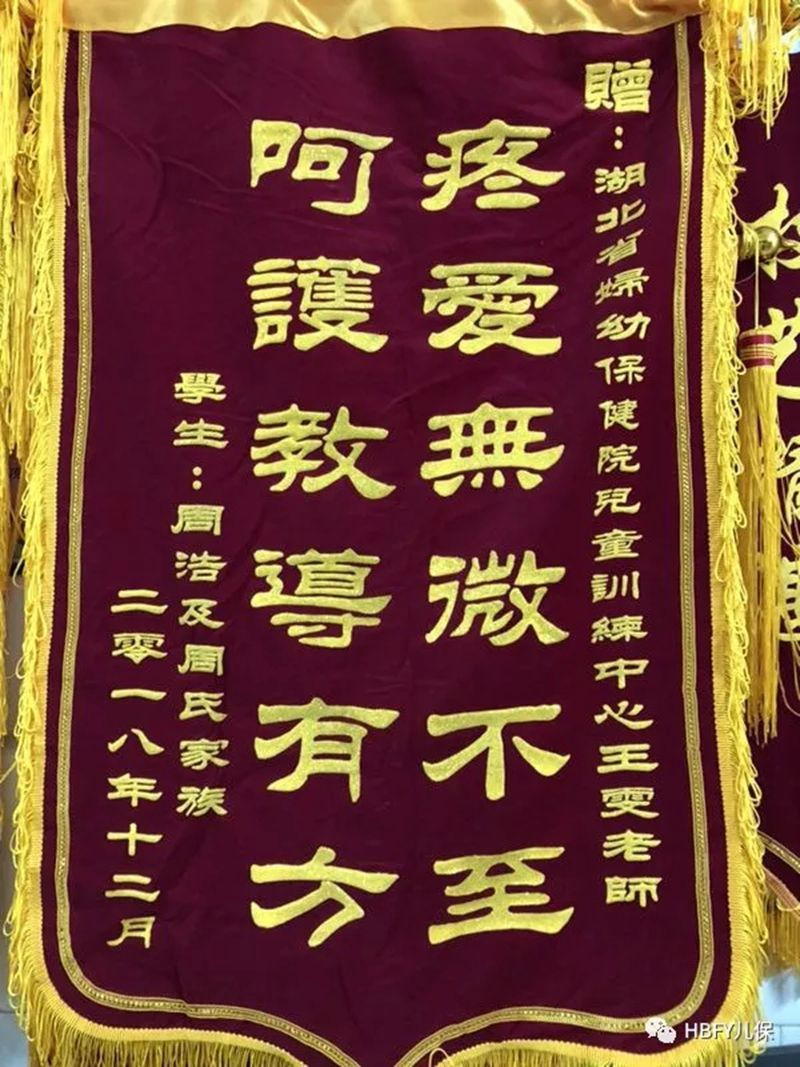 贈：湖北省婦幼保健院兒童訓練中心王雯老師
疼愛無微不至
呵護教導有方
學生：周浩及周氏家族
二零一八年十二月
HBFY儿保